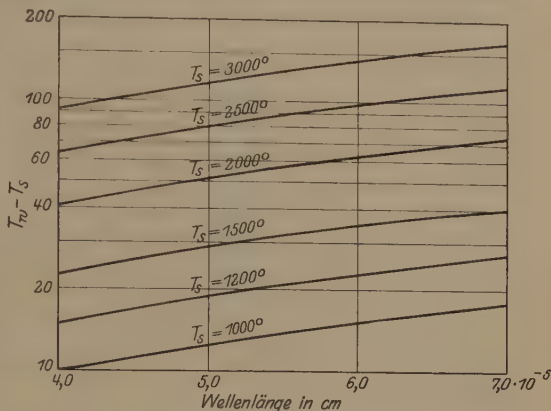 200
100
80
60
40
20
10
T_w – T_s
T_s = 3000°
T_s = 2500°
T_s = 2000°
T_s = 1500°
T_s = 1200°
T_s = 1000°
4,0 5,0 6,0 7,0·10⁻⁵
Wellenlänge in cm